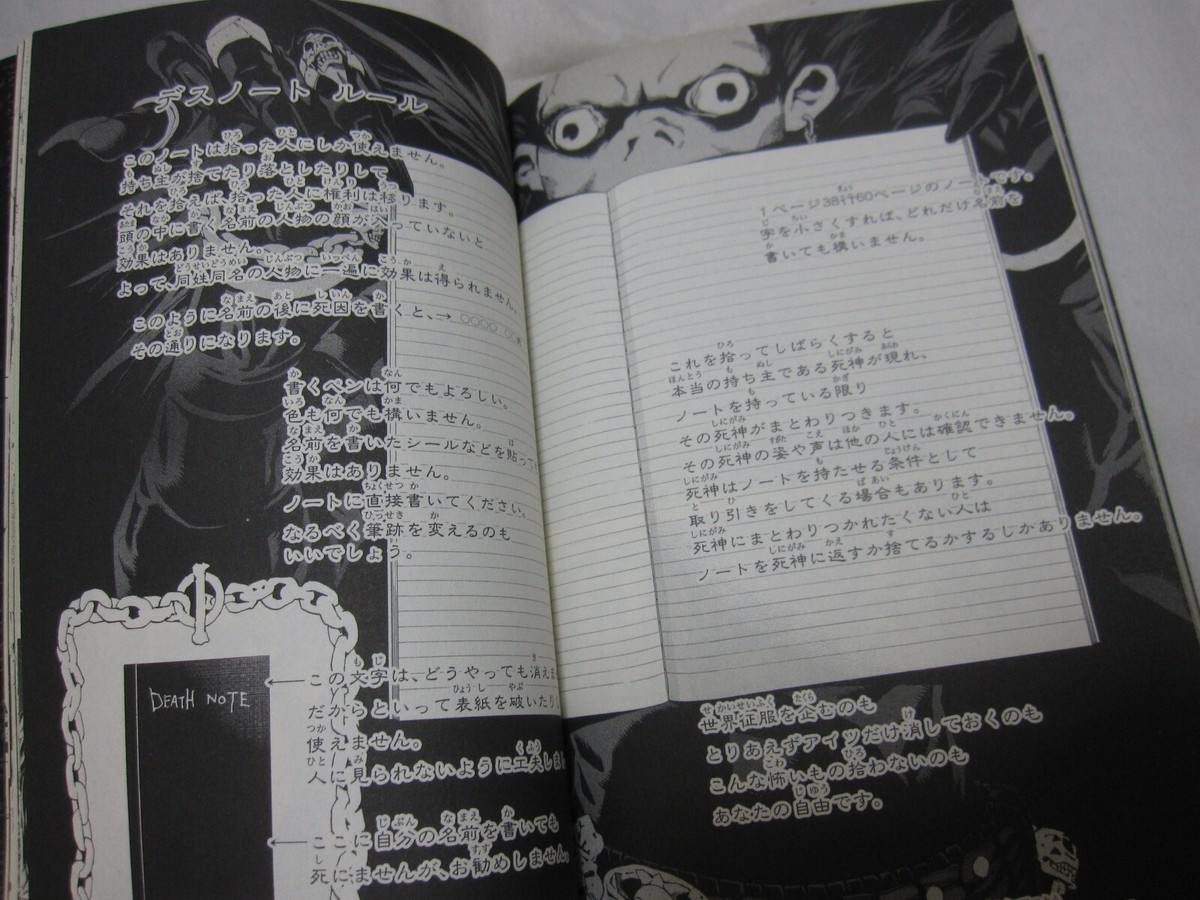 デスノート ルール
このノートは拾った人にしか使えません。
持ち主が捨てたり落としたりして
それを拾えば、拾った人に権利は移ります。
頭の中に書く名前の人物の顔が入っていないと
効果はありません。
よって、同姓同名の人物に一遍に効果は得られません。
このように名前の後に死因を書くと、→ ○○○○ ○○
その通りになります。
書くペンは何でもよろしい。
色も何でも構いません。
名前を書いたシールなどを貼って
効果はありません。
ノートに直接書いてください。
なるべく筆跡を変えるのも
いいでしょう。
DEATH NOTE
この文字は、どうやっても消え
だからといって表紙を破いたり
使えません。
人に見られないように工夫し
ここに自分の名前を書いても
死にませんが、お勧めしません。
1ページ38行60ページのノートです。
字を小さくすれば、どれだけ名前を
書いても構いません。
これを拾ってしばらくすると
本当の持ち主である死神が現れ、
ノートを持っている限り
その死神がまとわりつきます。
その死神の姿や声は他の人には確認できません。
死神はノートを持たせる条件として
取り引きをしてくる場合もあります。
死神にまとわりつかれたくない人は
ノートを死神に返すか捨てるかするしかありません。
世界征服を企むのも
とりあえずアイツだけ消しておくのも
こんな怖いもの拾わないのも
あなたの自由です。